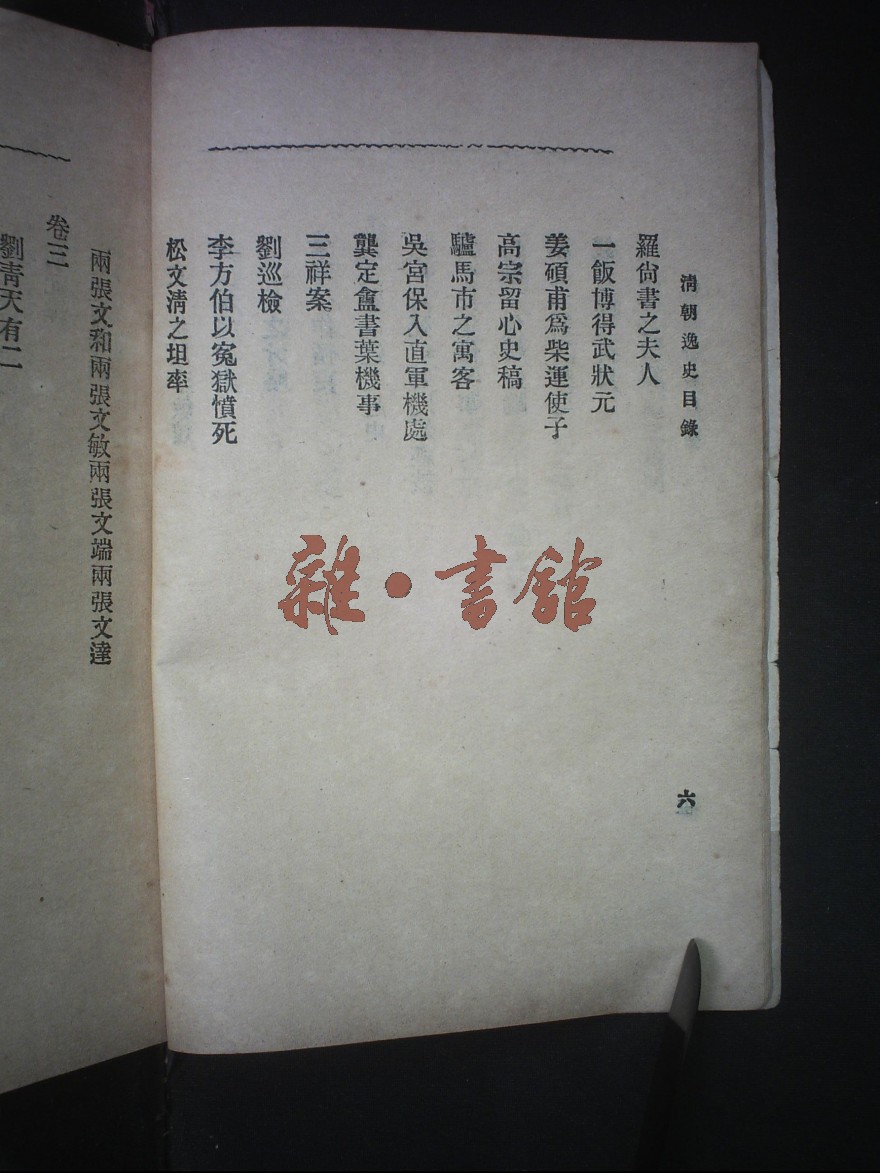 清朝逸史目錄
六
羅尙書之夫人
一飯博得武狀元
姜碩甫爲柴運使子
高宗留心史稿
驢馬市之寓客
吳宮保入直軍機處
龔定盦書葉機事
三祥案
劉巡檢
李方伯以冤獄憤死
松文淸之坦率
兩張文和兩張文敏兩張文端兩張文達
卷三
劉靑天有二
雜·書館